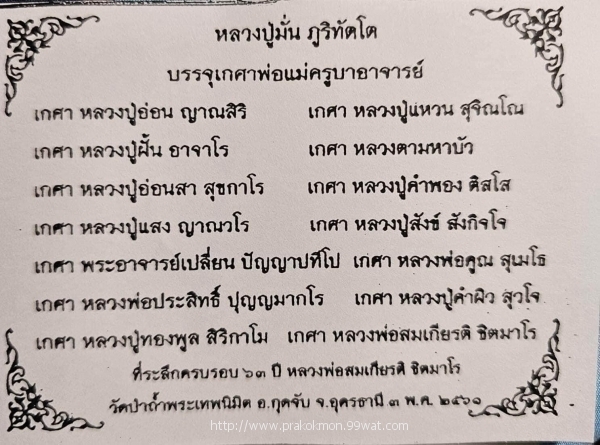 หลวงปู่มั่น ภูริทัตโต
บรรจุเกศาพ่อแม่ครูบาอาจารย์
เกศา หลวงปู่อ่อน ญาณสิริ เกศา หลวงปู่แหวน สุจิณโณ
เกศา หลวงปู่ฝั้น อาจาโร เกศา หลวงตามหาบัว
เกศา หลวงปู่อ่อนสา สุขกาโร เกศา หลวงปู่คำพอง ติสโส
เกศา หลวงปู่แสง ญาณวโร เกศา หลวงปู่สังข์ สังกิจโจ
เกศา พระอาจารย์เปลี่ยน ปัญญาปทีโป เกศา หลวงพ่อคูณ สุเมโธ
เกศา หลวงพ่อประสิทธิ์ ปุญญมากโร เกศา หลวงปู่คำผิว สุวโจ
เกศา หลวงปู่ทองพูล สิริกาโม เกศา หลวงพ่อสมเกียรติ ชิตมาโร
ที่ระลึกครบรอบ ๖๓ ปี หลวงพ่อสมเกียรติ ชิตมาโร
วัดป่าถ้ำพระเทพนิมิต อ.กุดจับ จ.อุดรธานี ๓ พ.ค. ๒๕๖๑
http://www.prakokmon.99wat.com